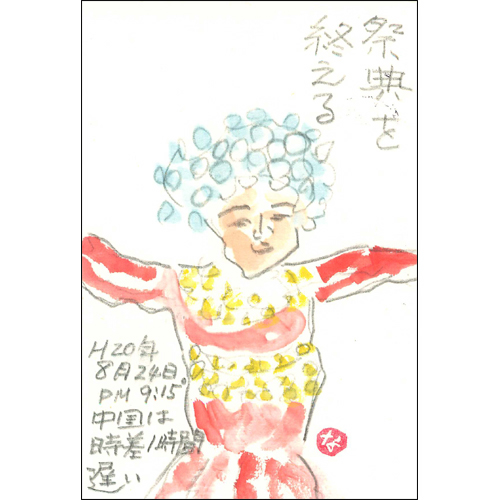 祭典を
終える
H20年
8月24日。
PM 9:15
中国は
時差1時間
遅い
な